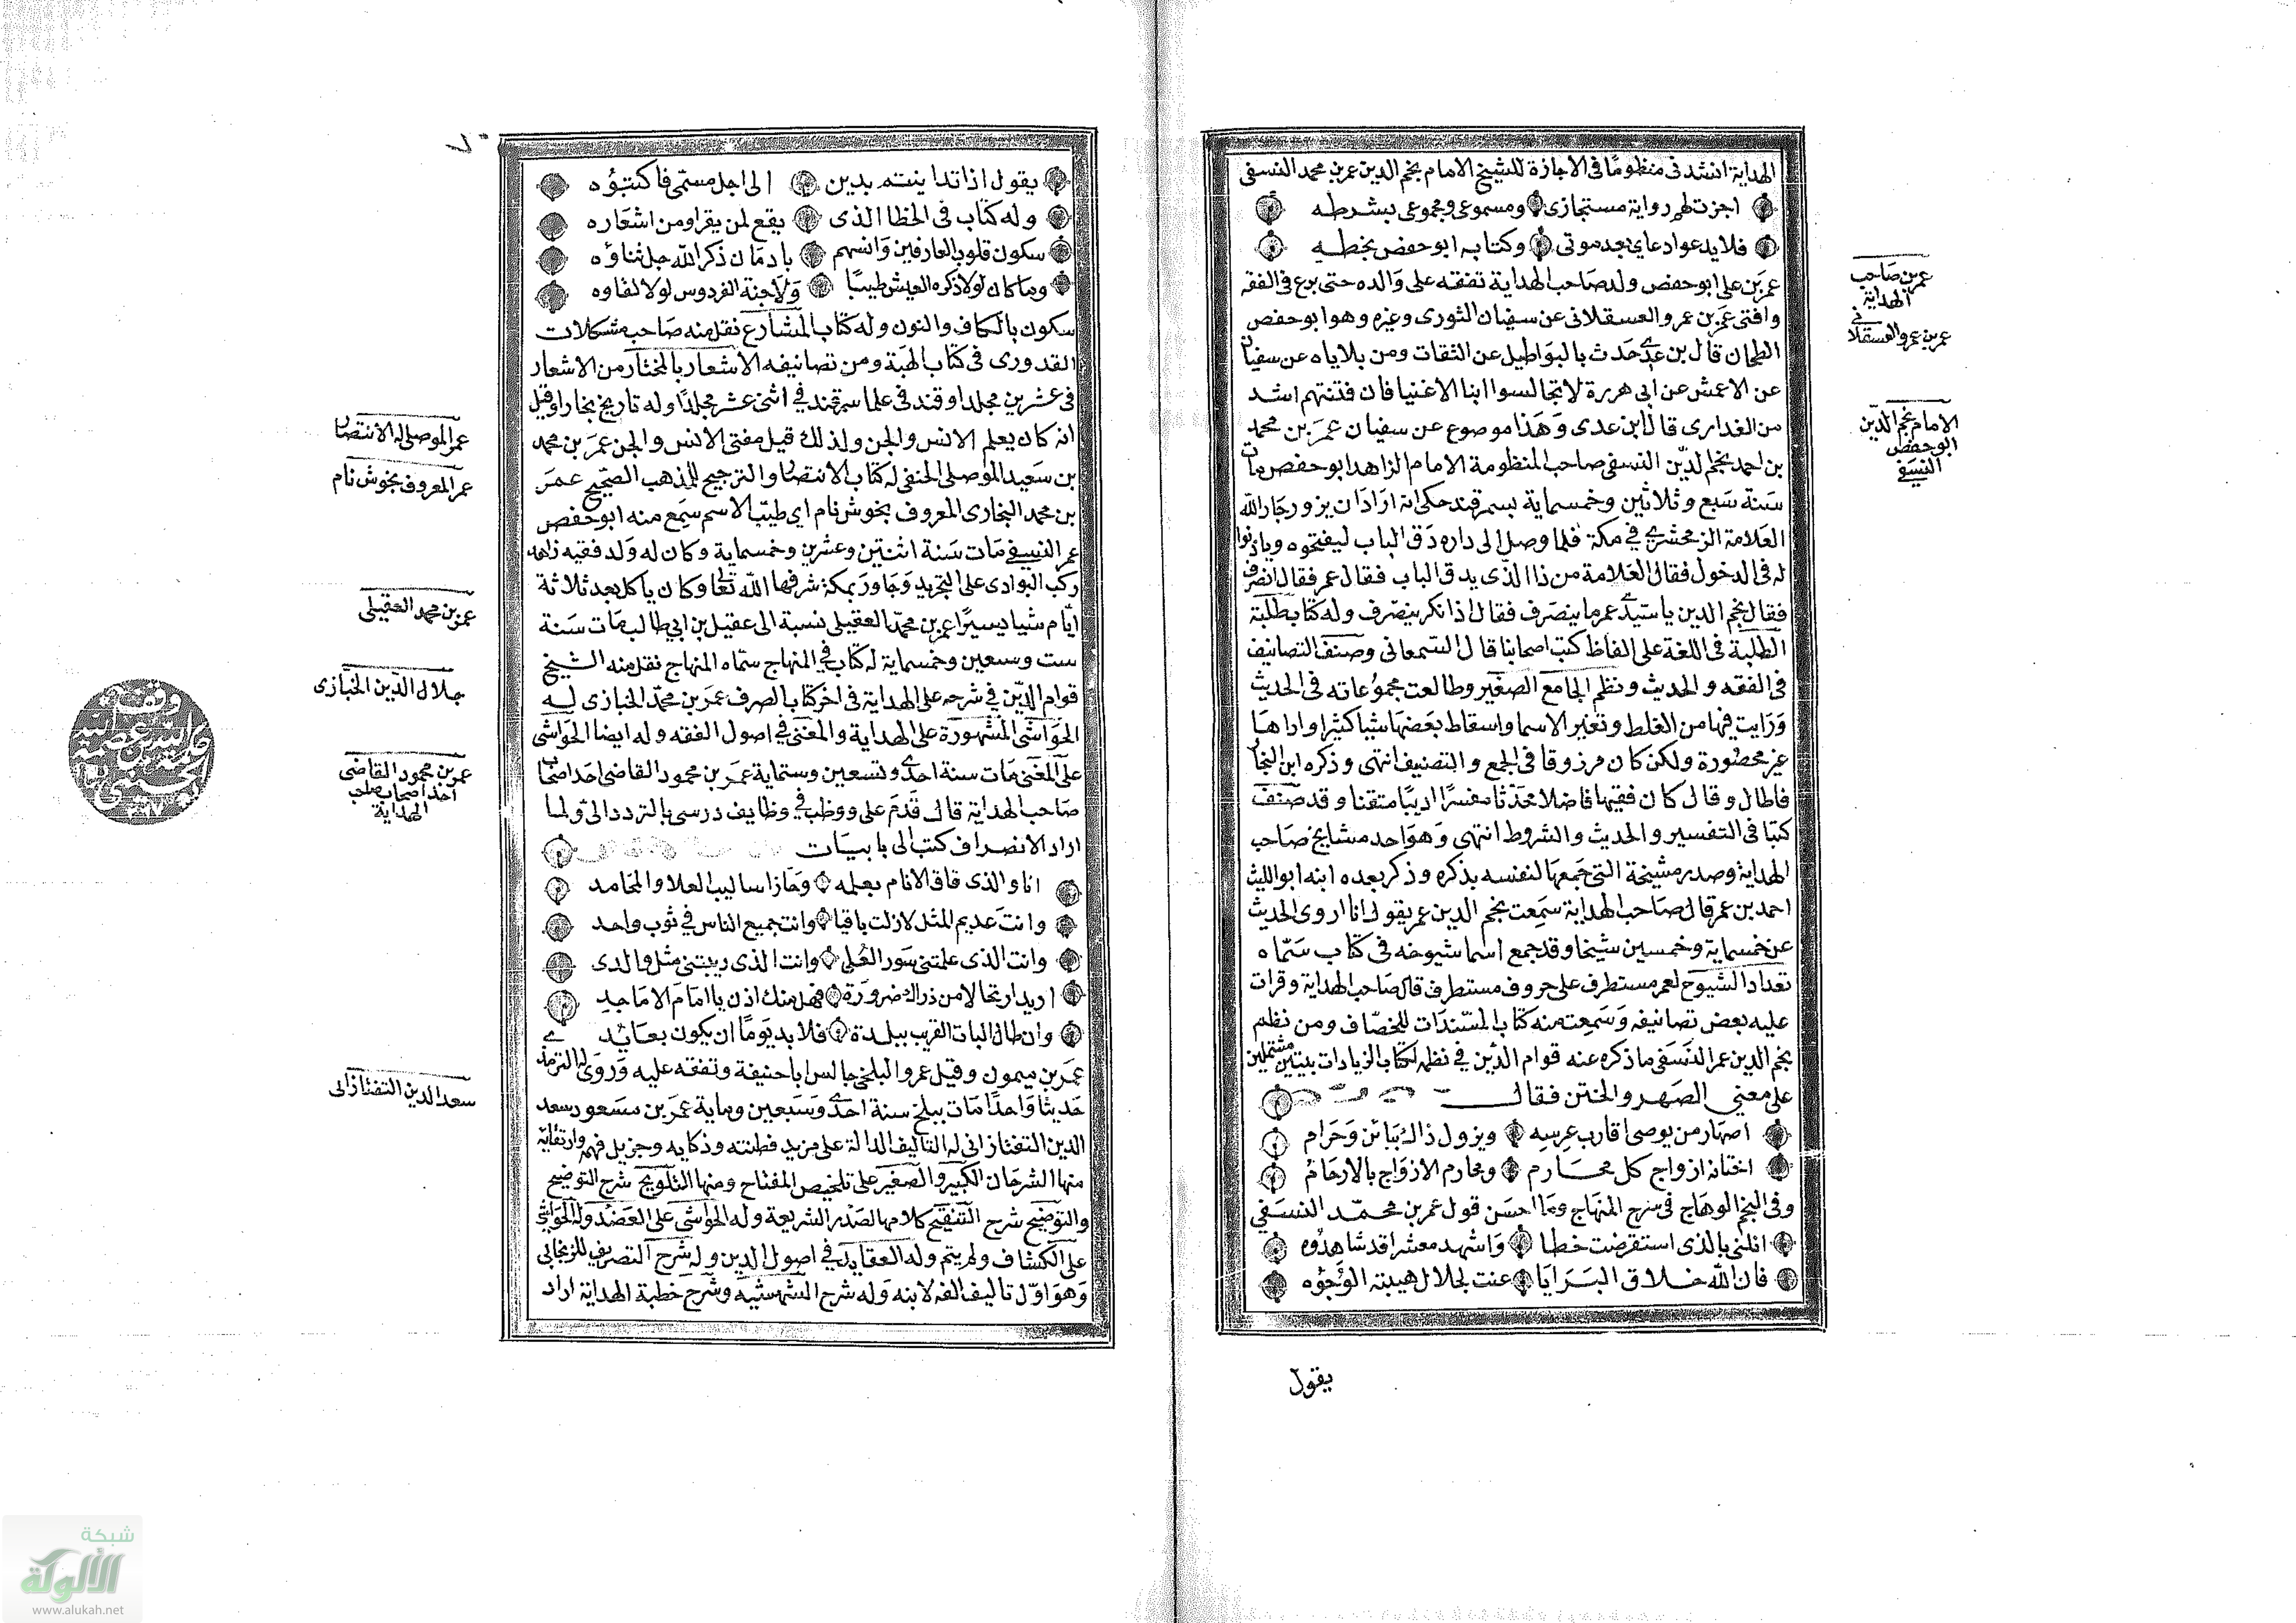 الهداية انشد فى منظومًا فى الاجازة للشيخ الامام نجم الدين عمر بن محمد النسفى
اجزت لهم رواية مستجازى ومسموعى ومجموعى بشرطه
فلا يدعوا دعاى بعد موتى وكتابه ابو حفص بخطه
عمر بن على ابو حفص ولد صاحب الهداية تفقه على والده حتى برع فى الفقه
وافتى عمر بن عمرو العسقلانى عن سفيان الثورى وغيره وهو ابو حفص
الطحان قال بن عدى حدث بالبواطيل عن الثقات ومن بلاياه عن سفيان
عن الاعمش عن ابى هريرة لا تجالسوا ابنا الاغنيا فان فتنتهم اشد
من العذارى قال ابن عدى وهذا موضوع عن سفيان عمر بن محمد
بن احمد نجم الدين النسفى صاحب المنظومة الامام الزاهد ابو حفص مات
سنة سبع وثلاثين وخمسماية بسمرقند حكى انه اراد ان يزور جار الله
العلامة الزمحشرى في مكة فلما وصل الى داره دق الباب ليفتحوه وياذنوا
له فى الدخول فقال العلامة من ذا الذى يدق الباب فقال عمر فقال انصرف
فقال نجم الدين يا سيدى عمر ما ينصرف فقال اذا نكر ينصرف وله كتاب طلبة
الطلبة فى اللغة على الفاظ كتب اصحابنا قال السمعانى وصنف التصانيف
فى الفقه والحديث ونظم الجامع الصغير وطالعت مجموعاته فى الحديث
ورايت فيها من الغلط وتغير الاسما واسقاط بعضها شيا كثيرا واداها
غير محصورة ولكن كان مرزوقا فى الجمع والتصنيف انتهى وذكره ابن النجار
فاطال وقال كان فقيها فاضلا محدثا مفسرًا اديبًا متقنا وقد صنف
كتبا فى التفسير والحديث والشروط انتهى وهو احد مشايخ صاحب
الهداية وصدر مشيخة التى جمعها لنفسه بذكره وذكر بعده ابنه ابو الليث
احمد بن عمر قال صاحب الهداية سمعت نجم الدين عمر يقول انا اروى الحديث
عن خمسماية وخمسين شيخا وقد جمع اسما شيوخه فى كتاب سماه
تعداد الشيوخ لعمر مستطرف على حروف مستطرف قال صاحب الهداية وقرات
عليه بعض تصانيفه وسمعت منه كتاب المسندات للخصاف ومن نظم
نجم الدين عمر النسفى ما ذكره عنه قوام الدين في نظم لكتاب الزيادات بيتين مشتملين
على معنى الصهر والختن فقال
اصهار من يوصى اقارب عرسه ويزول ذاك ببائن وحرام
اختانه ازواج كل محارم ومحارم الازواج بالارحام
وفى النجم الوهاج فى شرح المنهاج وما احسن قول عمر بن محمد النسفي
انلنى بالذى استقرضت خطا واشهد معشرا قد شاهدوه
فان الله خلاق البرايا عنت لجلال هيبته الوجوه
يقول
عمر بن صاحب
الهداية
عمر بن عمرو العسقلانى
الامام نجم الدين
ابو حفص
النسفى
٧٠
يقول اذا تداينتم بدين الى اجل مسمى فاكتبوه
وله كتاب فى الخطا الذى يقع لمن يقرا ومن اشعاره
سكون قلوب العارفين وانسهم بادمان ذكر الله جل ثناؤه
وما كان لولا ذكره العيش طيبًا ولا جنة الفردوس لولا لقاوه
سكون بالكاف والنون وله كتاب المشارع نقل منه صاحب مشكلات
القدورى فى كتاب الهبة ومن تصانيفه الاشعار بالمختار من الاشعار
فى عشرين مجلدا وقند فى علما سمرقند في اثنى عشر مجلدًا وله تاريخ بخارا وقيل
انه كان يعلم الانس والجن ولذلك قيل مفتى الانس والجن عمر بن محمد
بن سعيد الموصلى الحنفى له كتاب الانتصار والترجيح للمذهب الصحيح عمر
بن محمد البخارى المعروف بخوش نام اي طيب الاسم سمع منه ابو حفص
عمر النسفي مات سنة اثنتين وعشرين وخمسماية وكان له ولد فقيه زاهد
ركب البوادى على التجريد وجاور بمكة شرفها الله تعالى وكان ياكل بعد ثلاثة
ايام شيا يسيرًا عمر بن محمد العقيلى نسبة الى عقيل بن ابي طالب مات سنة
ست وسبعين وخمسماية له كتاب في المنهاج سماه المنهاج نقل منه الشيخ
قوام الدين في شرحه على الهداية فى اخر كتاب الصرف عمر بن محمد الخبازى له
الحواشى المشهورة على الهداية والمغنى في اصول الفقه وله ايضا الحواشى
على المغنى مات سنة احدى وتسعين وستماية عمر بن محمود القاضى احد اصحاب
صاحب الهداية قال قدم على ووظب في وظايف درسى بالتردد الى ولما
اراد الانصراف كتب الى بابيات
انا والذى فاق الانام بعلمه وحاز اساليب العلا والمحامد
وانت عديم المثل لا زلت باقيا وانت جميع الناس في ثوب واحد
وانت الذى علمتنى سور العلى وانت الذى ربيتنى مثل والدى
اريد ارتحالا من ذراك ضرورة فهل منك اذن يا امام الاماجد
وان طال البات الغريب ببلدة فلا بد يومًا ان يكون بعائد
عمر بن ميمون وقيل عمرو البلخى جالس ابا حنيفة وتفقه عليه وروى له الترمذى
حديثا واحدًا مات ببلخ سنة احدى وسبعين وماية عمر بن مسعود سعد
الدين التفتازانى له التاليف الدالة على مزيد فطنته وذكايه وجزيل فهمه وارتقايه
منها الشرحان الكبير والصغير على تلخيص المفتاح ومنها التلويح شرح التوضيح
والتوضيح شرح التنقيح كلامها لصدر الشريعة وله الحواشى على العضد وله الحواشى
على الكشاف ولم يتم وله العقايد في اصول الدين وله شرح التصريف للزنجانى
وهو اول تاليف الفه لابنه وله شرح الشمسية وشرح خطبة الهداية اراد
عمر الموصلى له الانتصار
عمر المعروف بخوش نام
عمر بن محمد العقيلى
جلال الدين الخبازى
عمر بن محمود القاضى
احد اصحاب صاحب
الهداية
سعد الدين التفتازانى
شبكة
الألوكة
www.alukah.net